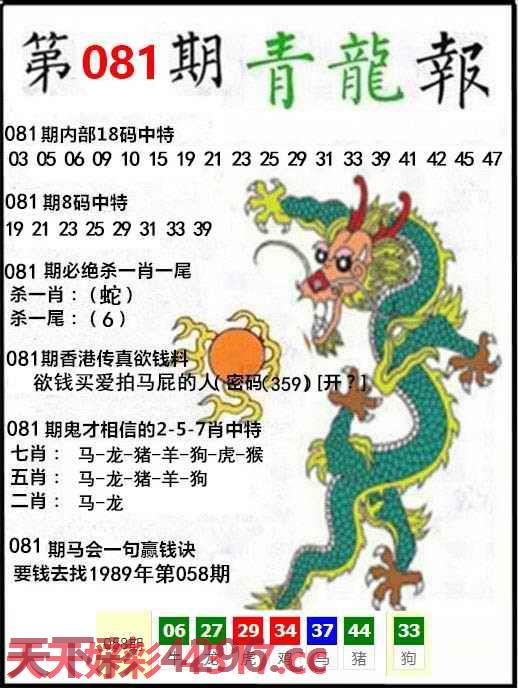 第081期 青龍報
081期内部18码中特
03 05 06 09 10 15 19 21 23 25 29 31 33 39 41 42 45 47
081期8码中特
19 21 23 25 29 31 33 39
081期必绝杀一肖一尾
杀一肖：（蛇）
杀一尾：（6）
081期香港传真欲钱料
欲钱买爱拍马屁的人(密码(359)[开？]
081期鬼才相信的2-5-7肖中特
七肖： 马-龙-猪-羊-狗-虎-猴
五肖： 马-龙-猪-羊-狗
二肖： 马-龙
081期马会一句赢钱诀
要钱去找1989年第058期
058期 06 27 29 34 37 44 33
牛 龙 虎 鸡 马 猪 狗